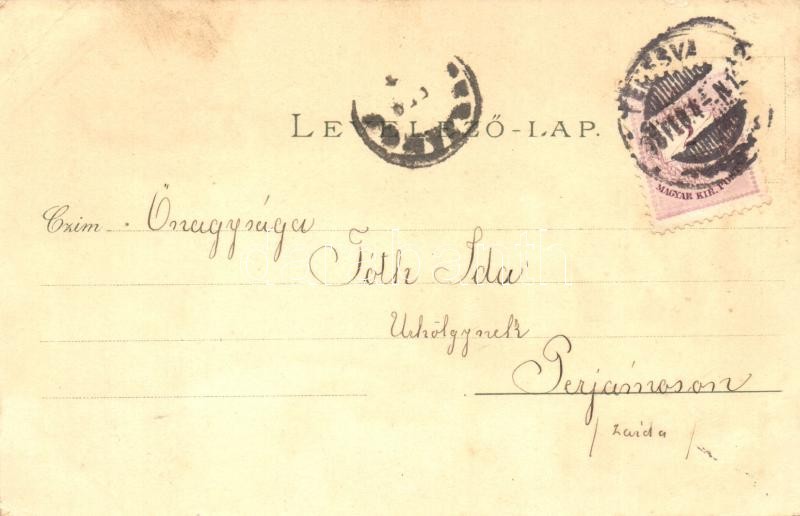 LEVELEZŐ-LAP.
MAGYAR KIR. POSTA
Czim. Önagysága
Tóth Ida
Urhölgynek
Perjámoson
/ zaida /